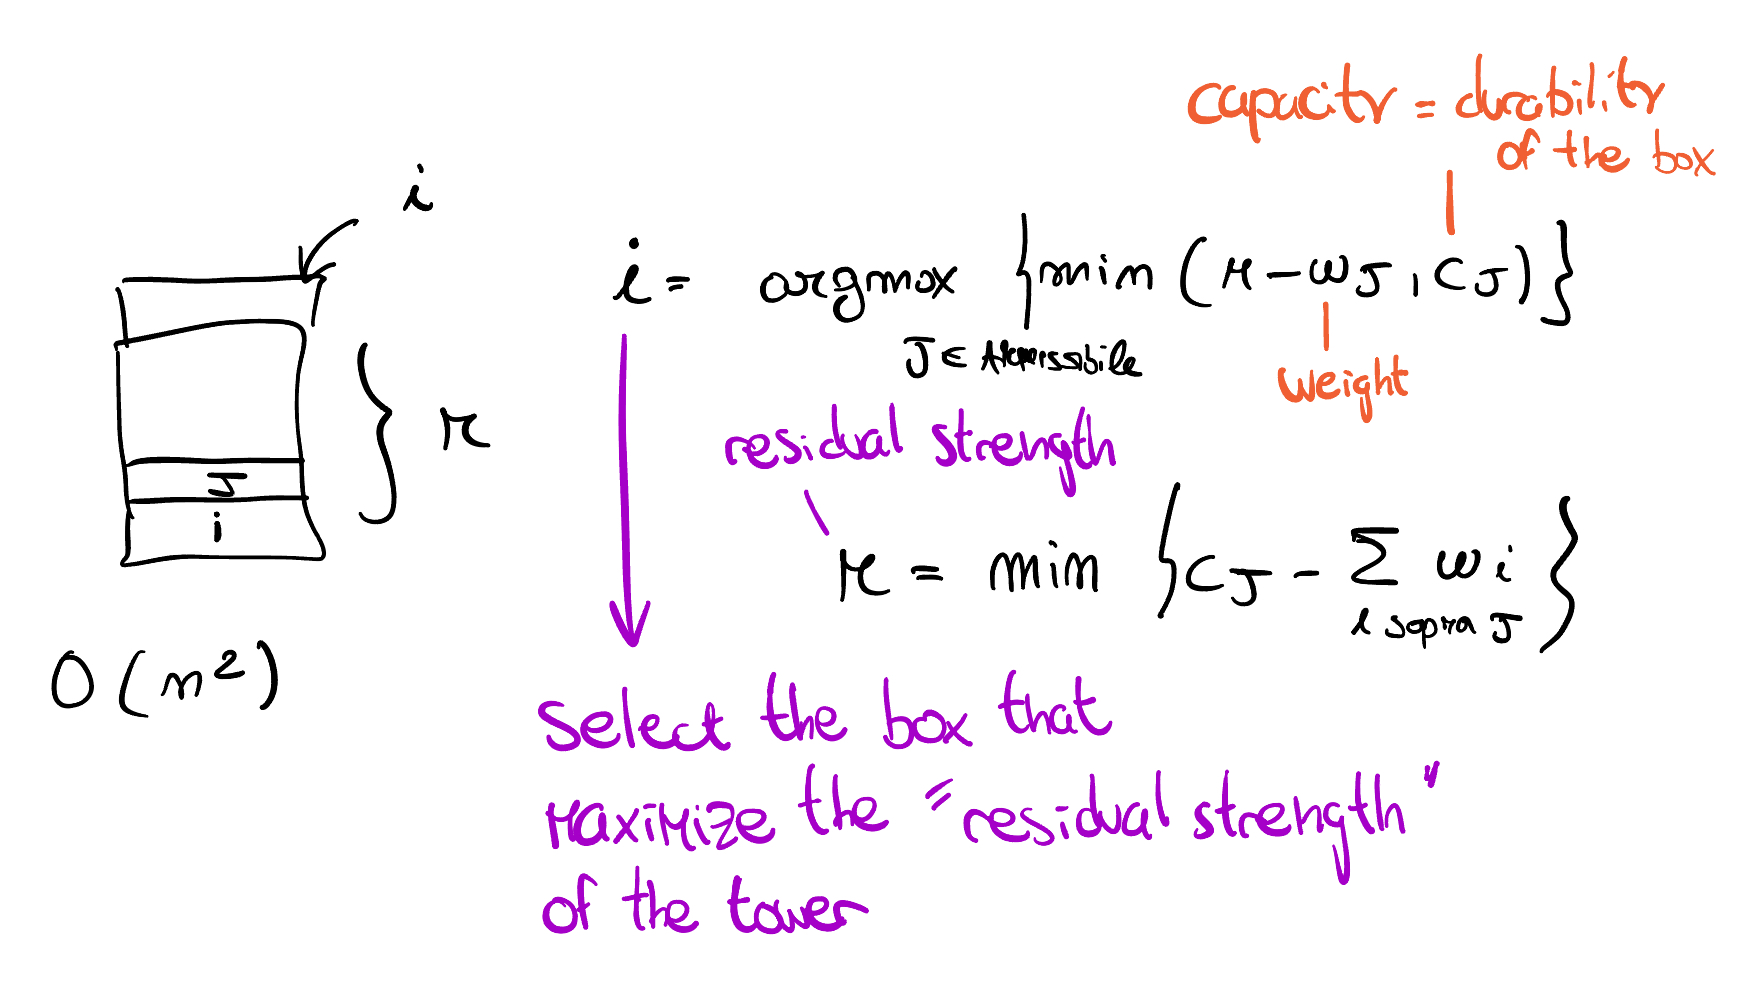 capacity = durability
of the box
i
i = argmax { min (r - wJ, CJ) }
J ∈
weight
r
residual strength
J
i
r = min { CJ - Σ wi }
i sopra J
O(n²)
Select the box that
maximize the "residual strength"
of the tower